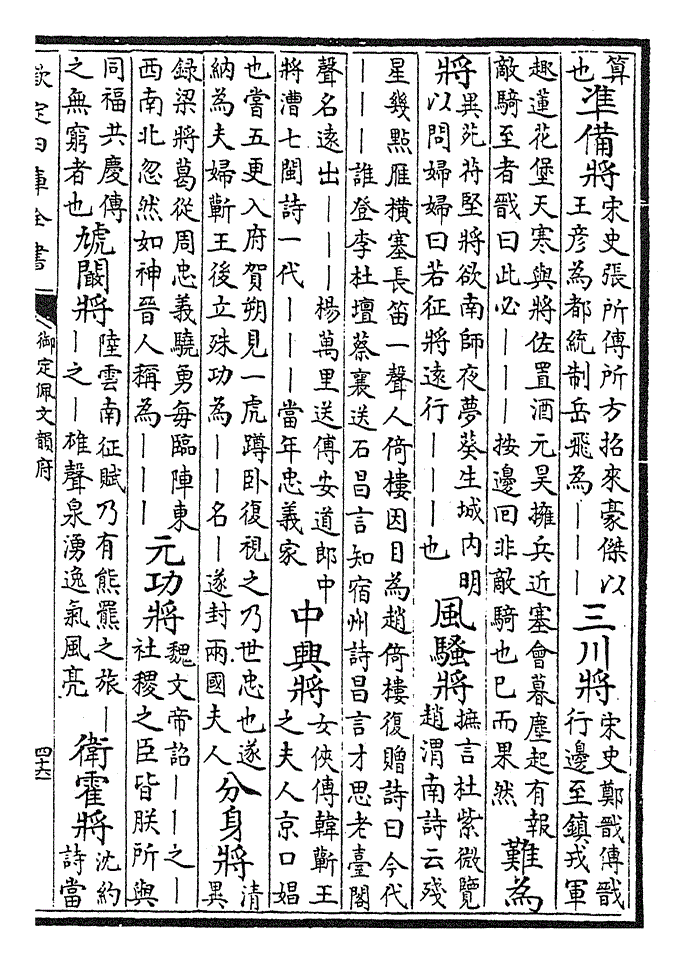 算也準備將宋史張所傳所方招來豪傑以王彦為都統制岳飛為———三川將宋史鄭戩傳戩行邊至鎮戎軍
趣蓮花堡天寒與將佐置酒元昊擁兵近塞會暮塵起有報敵騎至者戩曰此必———按邊回非敵騎也已而果然難為
將異苑苻堅將欲南師夜夢葵生城内明以問婦婦曰若征將遠行———也風騷將摭言杜紫微覽趙渭南詩云殘
星幾點雁横塞長笛一聲人倚樓因目為趙倚樓復贈詩曰今代———誰登李杜壇蔡襄送石昌言知宿州詩昌言才思老臺閣
聲名遠出———楊萬里送傅安道郎中將漕七閩詩一代———當年忠義家中興將女俠傳韓蘄王之夫人京口娼
也嘗五更入府賀朔見一虎蹲卧復視之乃世忠也遂納為夫婦蘄王後立殊功為——名—遂封兩國夫人分身將清異
録梁將葛從周忠義驍勇每臨陣東西南北忽然如神晉人稱為———元功將魏文帝詔——之—社稷之臣皆朕所與
同福共慶傳之無窮者也虓闞將陸雲南征賦乃有熊羆之旅——之—雄聲泉湧逸氣風亮衛霍將沈約詩當
欽定四庫全書
御定佩文韻府
四十六